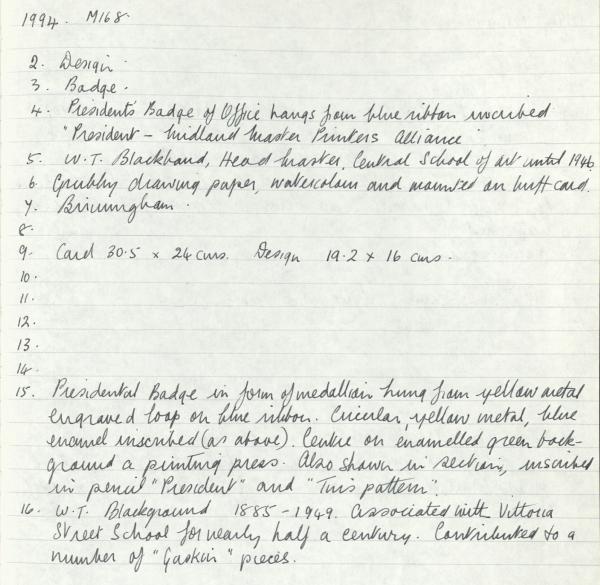 1994. M168.
2. Design.
3. Badge.
4. President's Badge of Office hangs from blue ribbon inscribed
"President - Midland Master Printers Alliance"
5. W.T. Blackband, Head Master, Central School of Art until 1946.
6. Grubby drawing paper, watercolour and mounted on buff card.
7. Birmingham.
8.
9. Card 30.5 x 24 cms. Design 19.2 x 16 cms.
10.
11.
12.
13.
14.
15. Presidential Badge in form of medallion hung from yellow metal
engraved loop on blue ribbon. Circular, yellow metal, blue
enamel inscribed (as above). Centre on enamelled green back-
ground a printing press. Also shown in section, inscribed
in pencil "President" and "This pattern".
16. W.T. Blackground 1885-1949. Associated with Vittoria
Street School for nearly half a century. Contributed to a
number of "Gaskin" pieces.